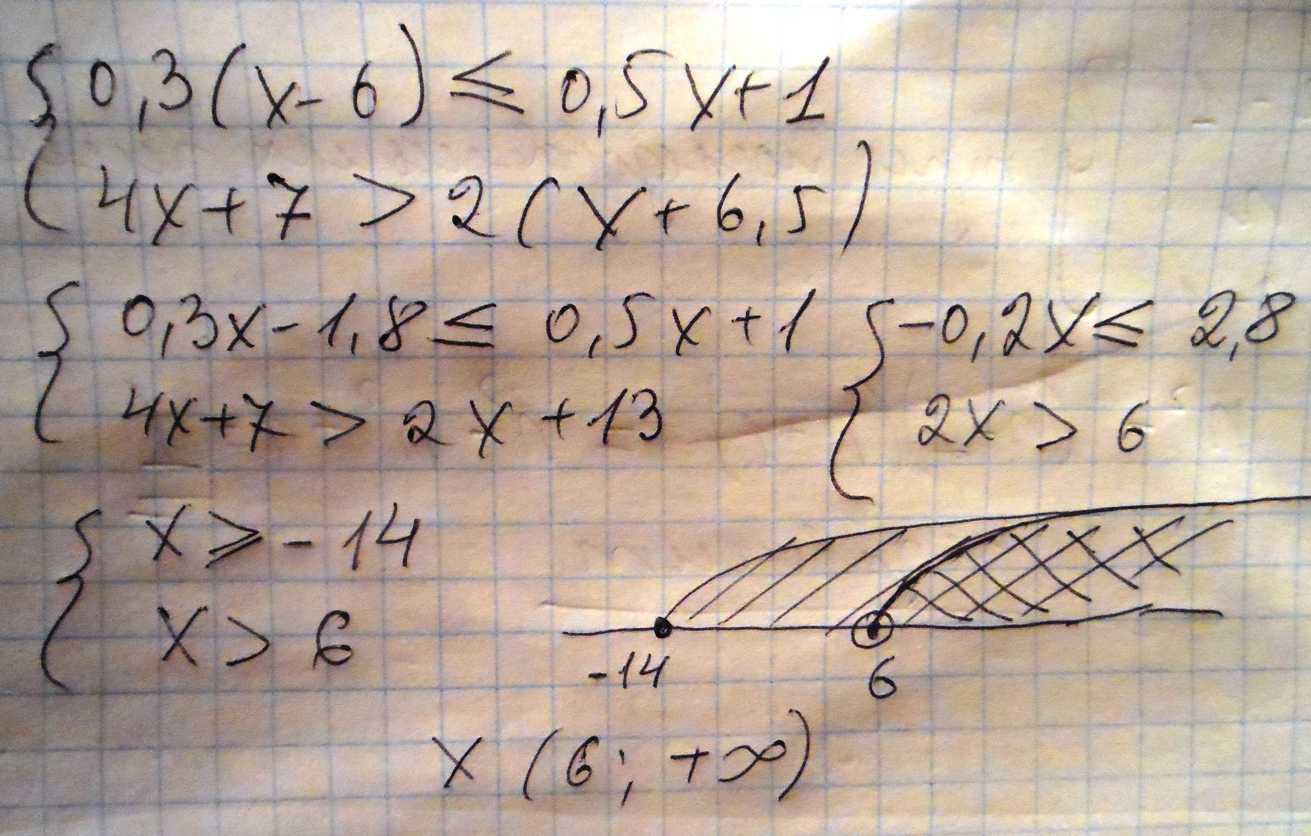 { 0,3(x-6) ≤ 0,5x+1
4x+7 > 2(x+6,5)
{ 0,3x-1,8 ≤ 0,5x+1 { -0,2x ≤ 2,8
4x+7 > 2x+13 2x > 6
{ x ≥ -14
x > 6
-14 6
x (6; +∞)